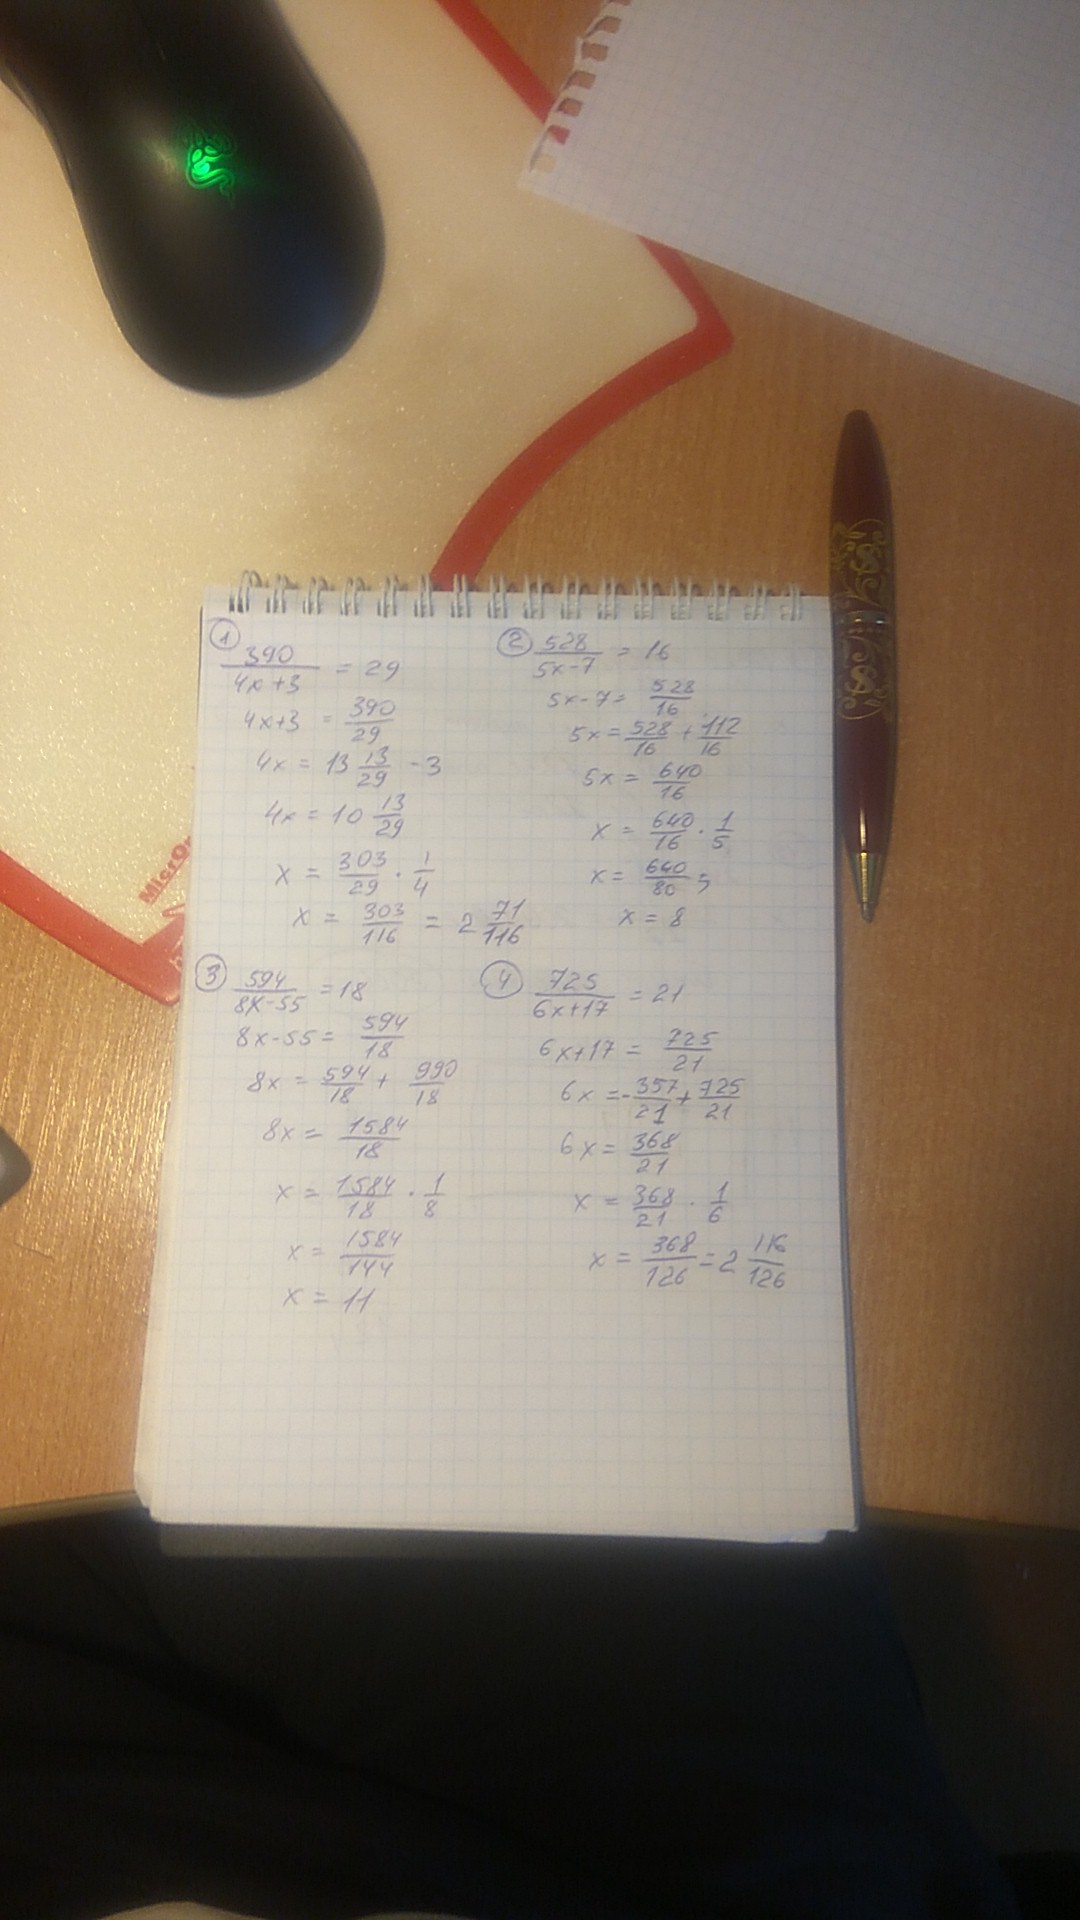 ① 390/(4x+3) = 29
4x+3 = 390/29
4x = 13 13/29 - 3
4x = 10 13/29
x = 303/29 · 1/4
x = 303/116 = 2 71/116
② 528/(5x-7) = 16
5x-7 = 528/16
5x = 528/16 + 112/16
5x = 640/16
x = 640/16 · 1/5
x = 640/80 ;
x = 8
③ 594/(8x-55) = 18
8x-55 = 594/18
8x = 594/18 + 990/18
8x = 1584/18
x = 1584/18 · 1/8
x = 1584/144
x = 11
④ 725/(6x+17) = 21
6x+17 = 725/21
6x = -357/21 + 725/21
6x = 368/21
x = 368/21 · 1/6
x = 368/126 = 2 116/126